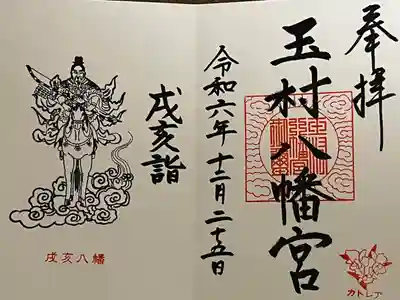 奉拝
玉村八幡宮
令和六年十二月二十五日
戌亥詣
戌亥八幡
カトレア